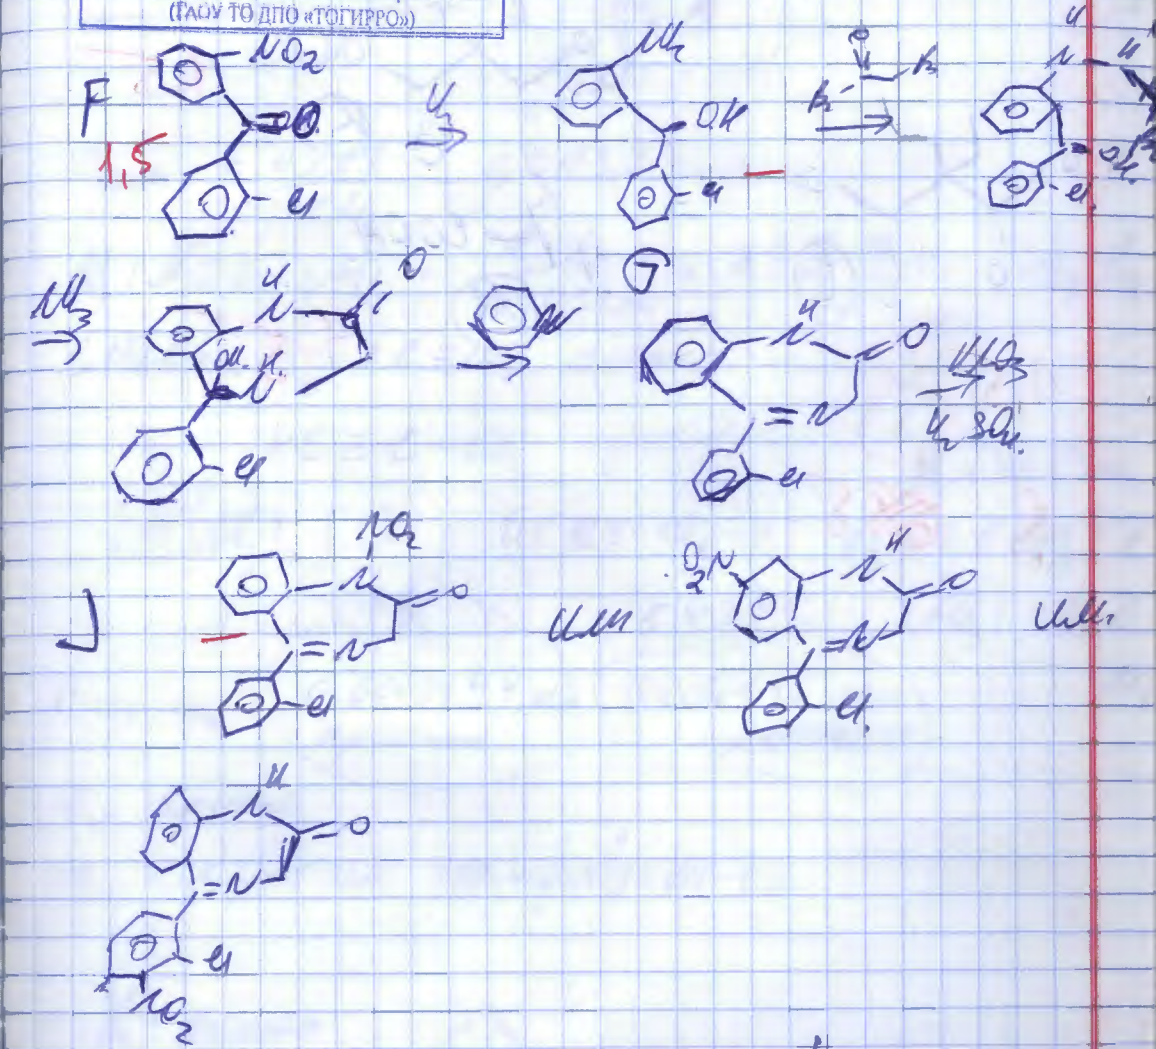 (ГАОУ ТО ДПО «ТОГИРРО»)
F
1,5
NO2
O
Cl
H2
NH2
OH
Cl
O
Br
Br
H
N
OH
Cl
NH3
H
N
O
OH
H
N
Cl
N
H
N
O
N
Cl
HNO3
H2SO4
J
NO2
N
O
=N
Cl
или
O2N
H
N
O
=N
Cl
или
H
N
O
=N
Cl
NO2